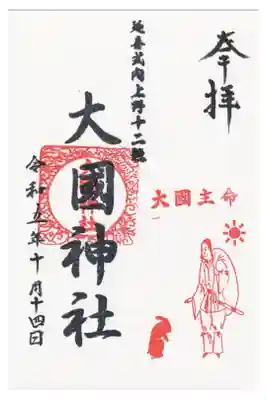 奉拝
延喜式内上野十二社
大國神社
大國主命
令和五年十月十四日